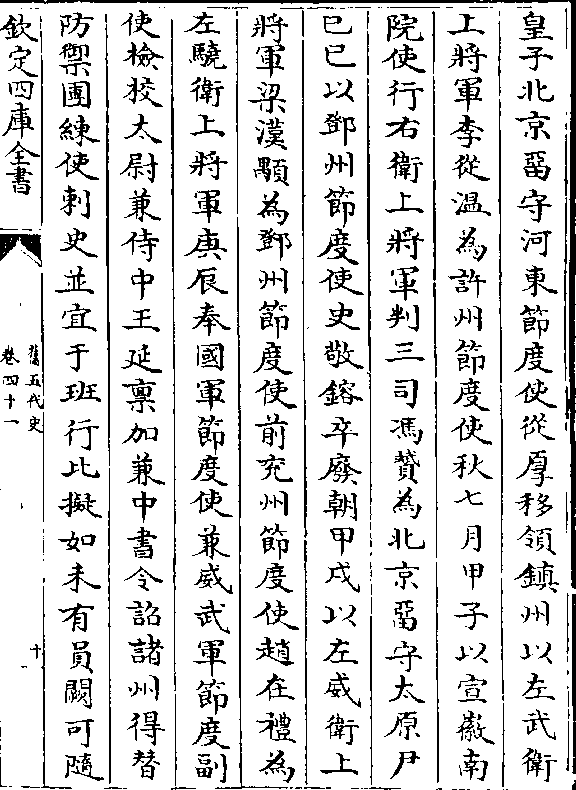 皇子北京畱守河東節度使從厚移領鎮州以左武衛
上將軍李從溫為許州節度使秋七月甲子以宣徽南
院使行右衛上將軍判三司馮贇為北京畱守太原尹
巳巳以鄧州節度使史敬鎔卒廢朝甲戌以左威衛上
將軍梁漢顒為鄧州節度使前兖州節度使趙在禮為
左驍衛上將軍庚辰奉國軍節度使兼威武軍節度副
使檢校太尉兼侍中王延稟加兼中書令詔諸州得替
防禦團練使刺史並宜于班行比擬如未有員闕可隨
欽定四庫全書
舊五代史
卷四十一
十